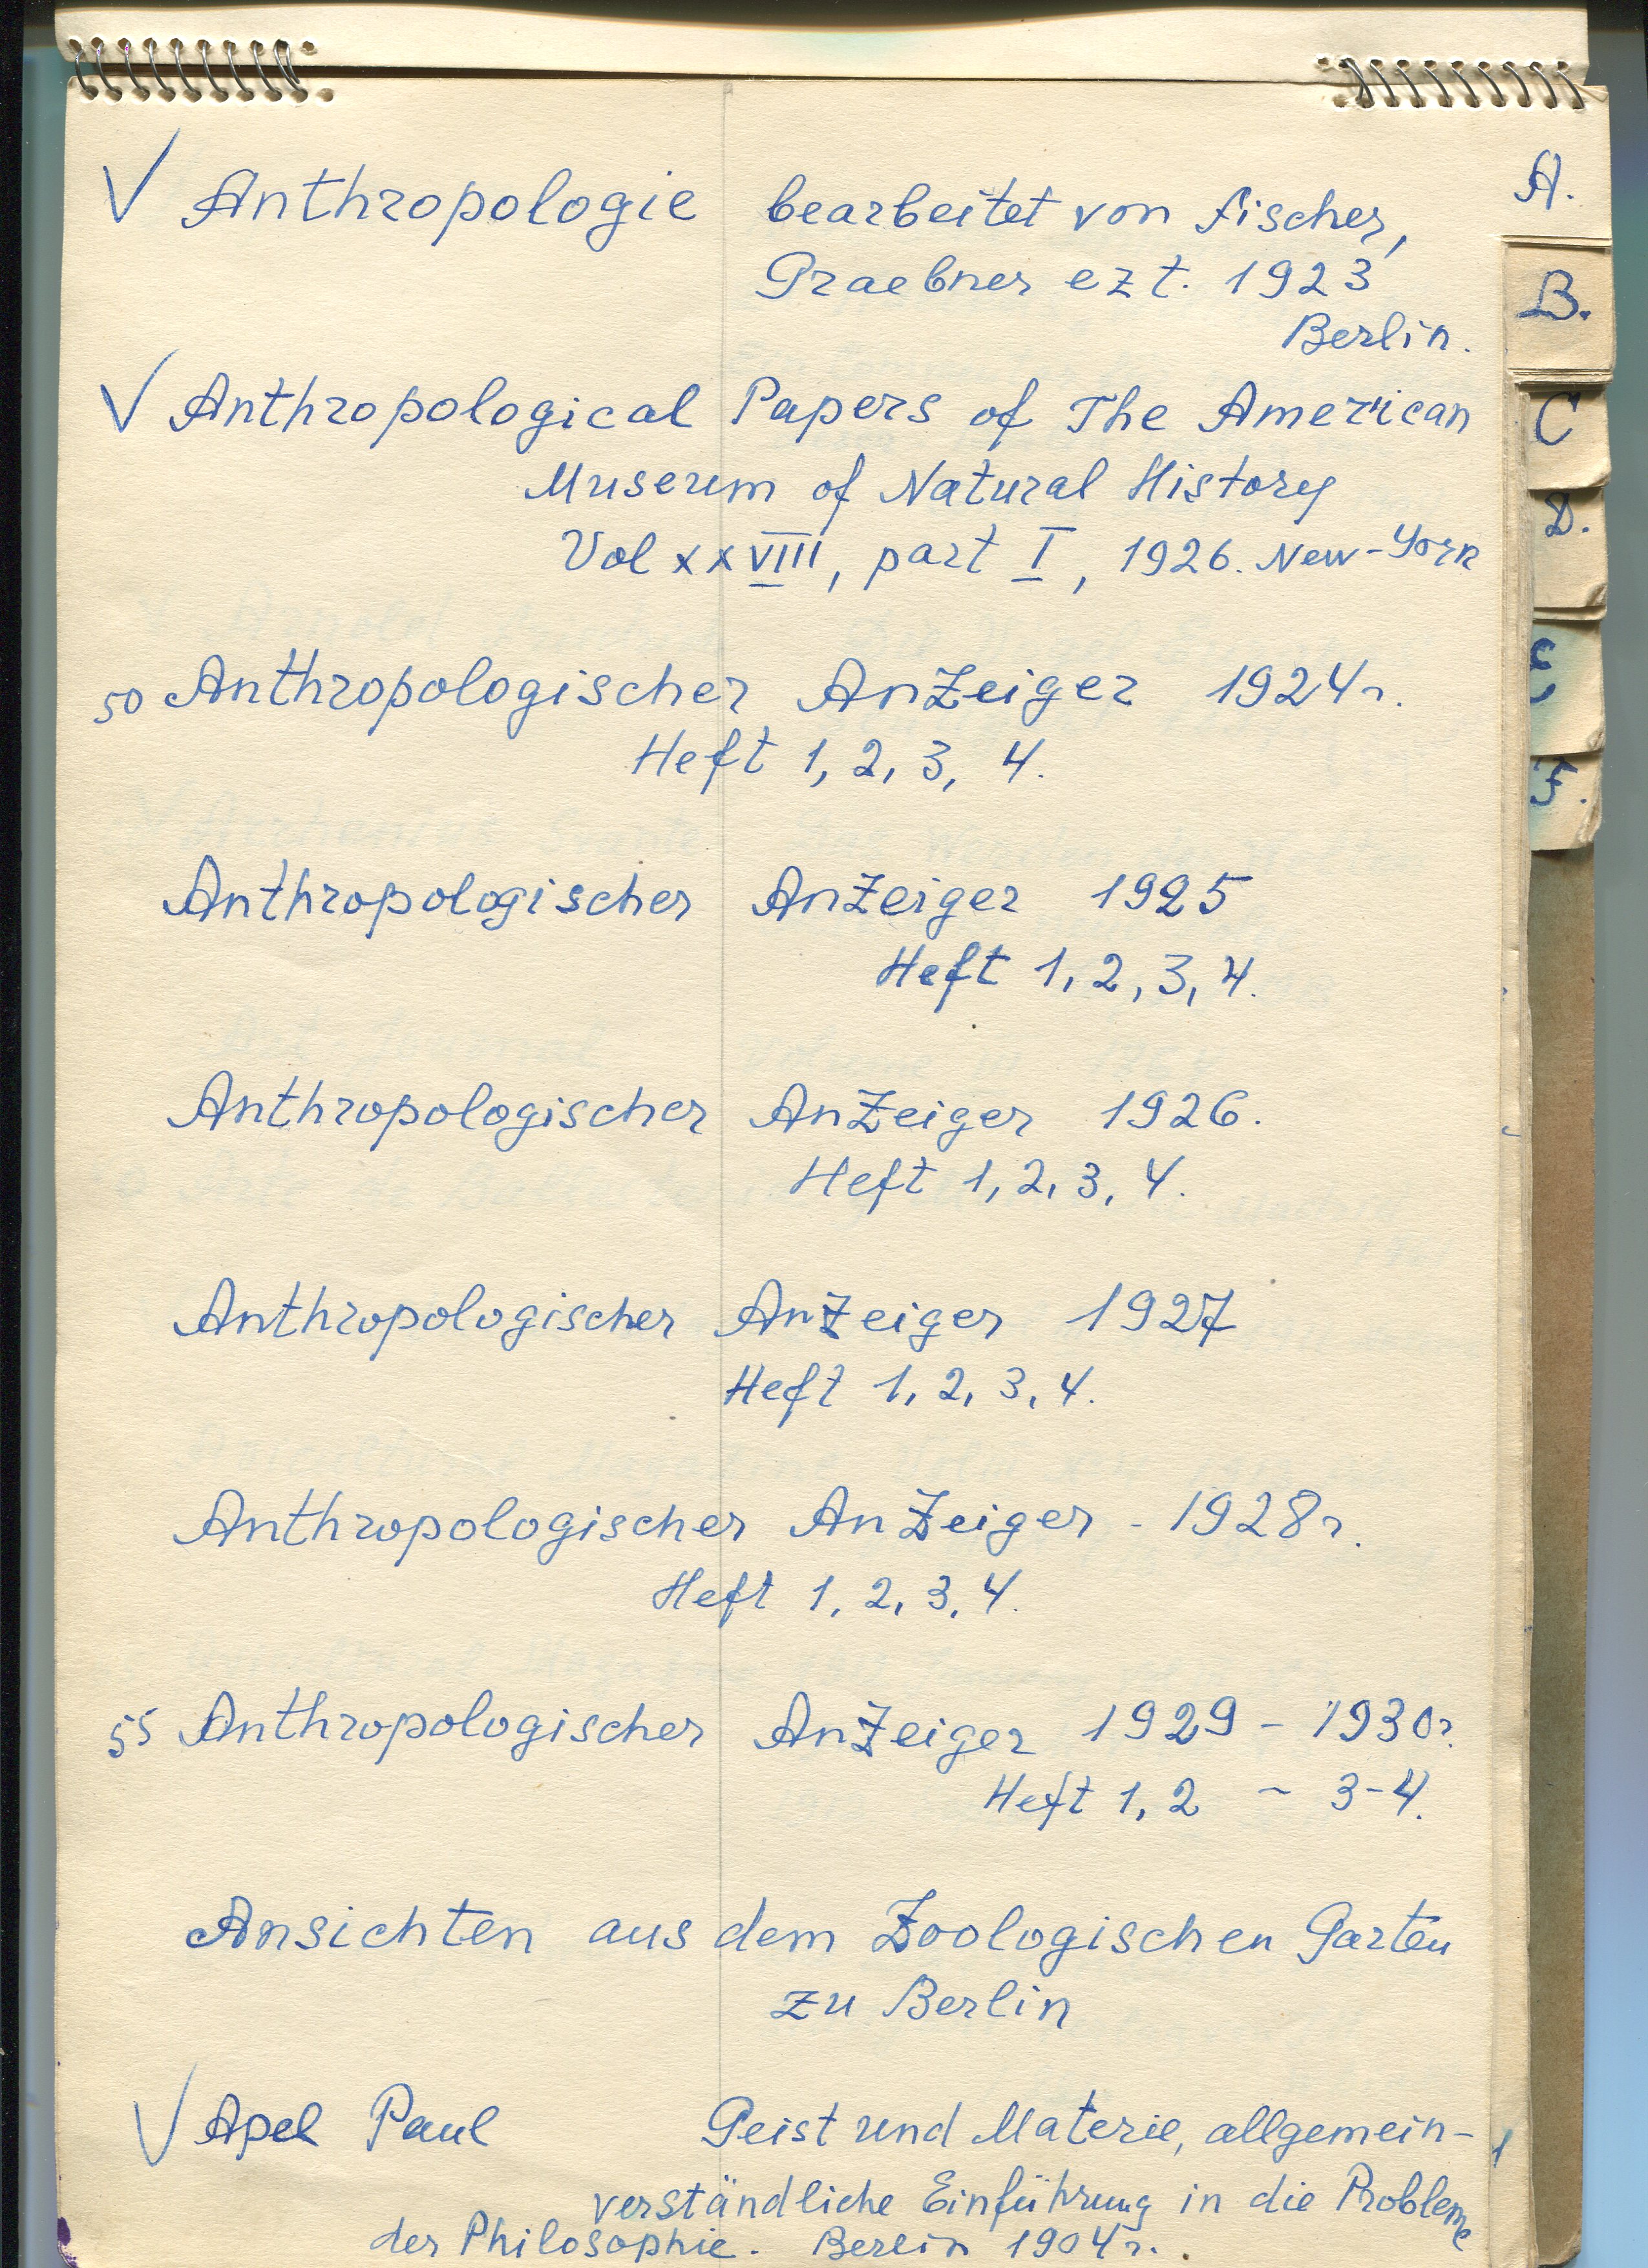 V Anthropologie bearbeitet von Fischer,
Graebner ezt. 1923
Berlin.
V Anthropological Papers of The American
Museum of Natural History
Vol XXVIII, part I, 1926. New-York
50 Anthropologischer Anzeiger 1924 г.
Heft 1, 2, 3, 4.
Anthropologischer Anzeiger 1925
Heft 1, 2, 3, 4.
Anthropologischer Anzeiger 1926.
Heft 1, 2, 3, 4.
Anthropologischer Anzeiger 1927
Heft 1, 2, 3, 4.
Anthropologischer Anzeiger - 1928 г.
Heft 1, 2, 3, 4.
55 Anthropologischer Anzeiger 1929 - 1930 г.
Heft 1, 2 - 3-4.
Ansichten aus dem Zoologischen Garten
zu Berlin
V Apel Paul Geist und Materie, allgemein-
verständliche Einführung in die Probleme
der Philosophie. Berlin 1904 г.
A.
B.
C
D.
E
F.